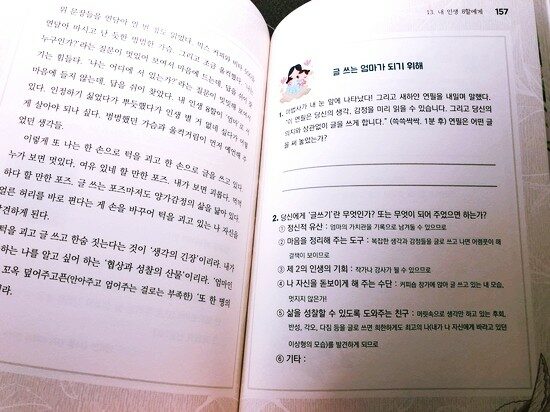 위 문장들을 연달아
연달아 마시고 난 듯한 멍멍한 가슴. 그리고 조금 울컥했다
누구인가?'라는 질문이 멋있어 보여서 마음에 드는데, 답을 쉬이 찾
기는 힘들다. '나는 어디에 서 있는가?'라는 질문이 멋있어 보이
마음에 들지 않는데, 답을 쉬이 찾았다. 내 인생 8할이 엄마로
있다. 인정하기 싫었다가 뿌듯했다가 인생 별 거 없네 싶다가 어떻
게 살아야 되나 싶다. 벙벙했던 가슴과 울컥거림이 먼저 예언해 주
었던 생각들.
이렇게 또 나는 한 손으로 턱을 괴고 한 손으로 글을 쓰고 있다.
누가 보면 멋있다. 여유 있네 할 만한 포즈. 내가 보면 괴롭다. 역력
하다 할 만한 포즈. 글 쓰는 포즈마저도 양가감정의 삶을 닮아 있다.
얼른 허리를 바로 편다는 게 손을 바꾸어 턱을 괴고 있는 나 자신을
발견하게 된다.
턱을 괴고 글 쓰고 한숨 짓는다는 것이 '생각의 긴장'이리라. 내가
는 나를 알고 싶어 하는 '협상과 성찰의 산물'이리라. '엄마인
꼬옥 덮어주고픈(안아주고 업어주는 걸로는 부족한) '또 한 명의
라.
13. 내 인생 8할에게 157
글 쓰는 엄마가 되기 위해
1. 마법사가 내 눈 앞에 나타났다! 그리고 새하얀 연필을 내밀며 말했다.
"이 연필은 당신의 생각, 감정을 미리 읽을 수 있습니다. 그리고 당신의
의지와 상관없이 글을 쓰게 합니다." (쓱싹싹싹. 1분 후) 연필은 어떤 글
을 써 놓았는가?
2. 당신에게 '글쓰기'란 무엇인가? 또는 무엇이 되어 주었으면 하는가?
① 정신적 유산 : 엄마의 가치관을 기록으로 남겨둘 수 있으므로
② 마음을 정리해 주는 도구 : 복잡한 생각과 감정들을 글로 쓰고 나면 어렴풋이 해
결책이 보이므로
③ 제 2의 인생의 기회 : 작가나 강사가 될 수 있으므로
④ 나 자신을 돋보이게 해 주는 수단 : 커피숍 창가에 앉아 글 쓰고 있는 내 모습,
멋지지 않은가!
⑤ 삶을 성찰할 수 있도록 도와주는 친구 : 머릿속으로 생각만 하고 있는 후회,
반성, 각오, 다짐 등을 글로 쓰면 희한하게도 최고의 나(내가 나 자신에게 바라고 있던
이상형의 모습)를 발견하게 되므로
⑥ 기타 :